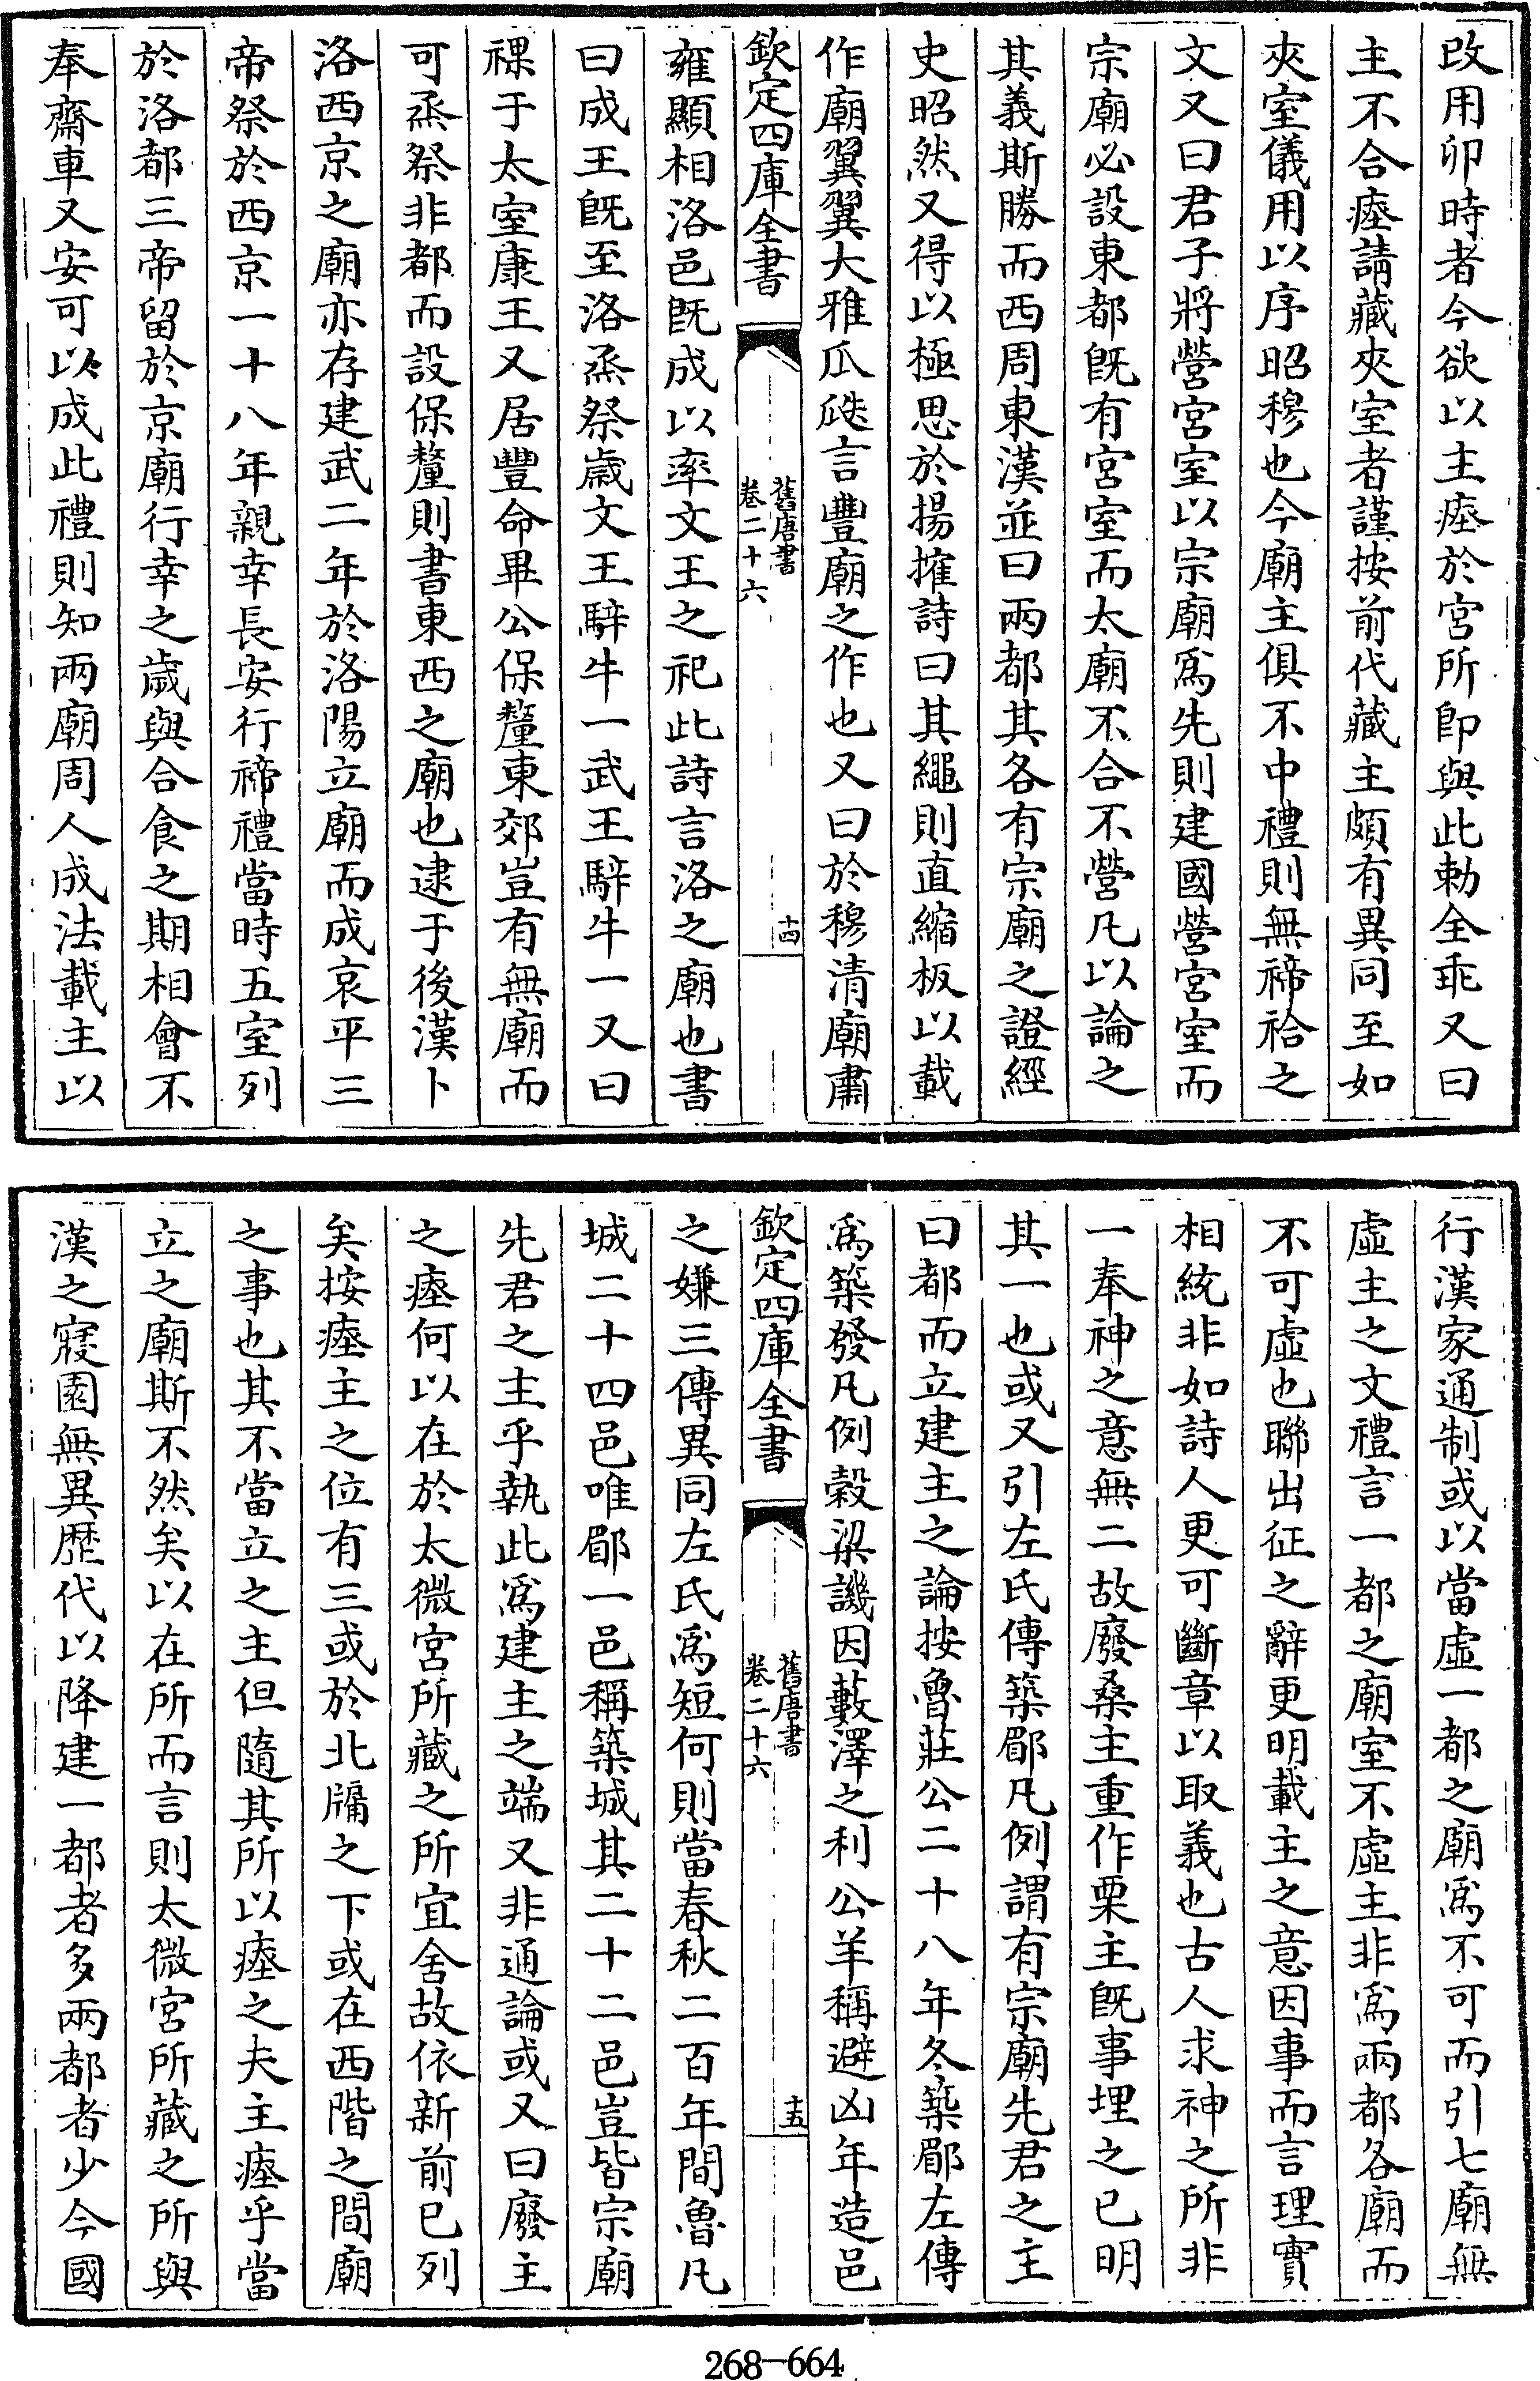 改用卯時者今欲以主瘞於宮所即與此勅全乖又曰
主不合瘞請藏夾室者謹按前代藏主頗有異同至如
夾室儀用以序昭穆也今廟主俱不中禮則無禘祫之
文又曰君子將營宮室以宗廟爲先則建國營宮室而
宗廟必設東都旣有宮室而太廟不合不營凡以論之
其義斯勝而西周東漢並曰兩都其各有宗廟之證經
史昭然又得以極思於揚搉詩曰其繩則直縮板以載
作廟翼翼大雅瓜瓞言豐廟之作也又曰於穆清廟肅
欽定四庫全書
舊唐書
卷二十六
十四
雍顯相洛邑旣成以率文王之祀此詩言洛之廟也書
曰成王旣至洛烝祭歲文王騂牛一武王騂牛一又曰
祼于太室康王又居豐命畢公保釐東郊豈有無廟而
可烝祭非都而設保釐則書東西之廟也逮于後漢卜
洛西京之廟亦存建武二年於洛陽立廟而成哀平三
帝祭於西京一十八年親幸長安行禘禮當時五室列
於洛都三帝留於京廟行幸之歲與合食之期相會不
奉齋車又安可以成此禮則知兩廟周人成法載主以
行漢家通制或以當虛一都之廟爲不可而引七廟無
虛主之文禮言一都之廟室不虛主非爲兩都各廟而
不可虛也聯出征之辭更明載主之意因事而言理實
相統非如詩人更可斷章以取義也古人求神之所非
一奉神之意無二故廢桑主重作栗主旣事埋之已明
其一也或又引左氏傳築郿凡例謂有宗廟先君之主
曰都而立建主之論按魯莊公二十八年冬築郿左傳
爲築發凡例穀梁譏因藪澤之利公羊稱避凶年造邑
欽定四庫全書
舊唐書
卷二十六
十五
之嫌三傳異同左氏爲短何則當春秋二百年間魯凡
城二十四邑唯郿一邑稱築城其二十二邑豈皆宗廟
先君之主乎執此爲建主之端又非通論或又曰廢主
之瘞何以在於太微宮所藏之所宜舍故依新前已列
矣按瘞主之位有三或於北牖之下或在西階之間廟
之事也其不當立之主但隨其所以瘞之夫主瘞乎當
立之廟斯不然矣以在所而言則太微宮所藏之所與
漢之寢園無異歷代以降建一都者多兩都者少今國
268-664